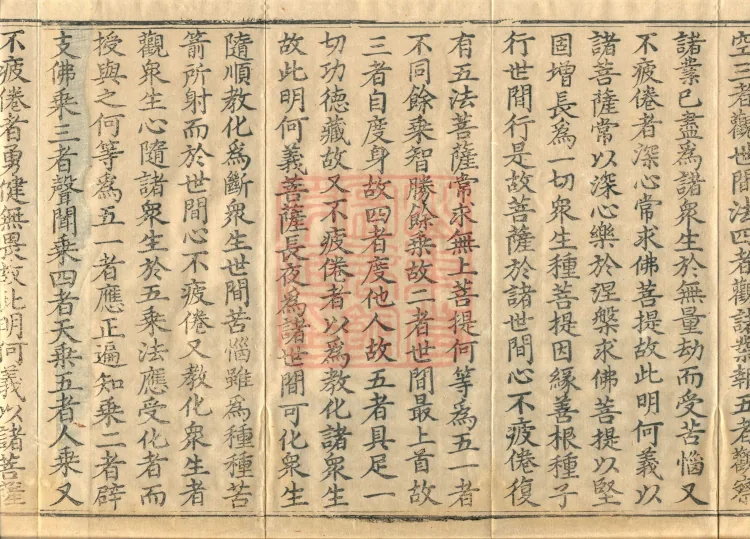 空三者觀世間法四者觀諸業報五者觀察
諸業已盡為諸衆生於無量劫而受苦惱又
不疲倦者深心常求佛菩提故此明何義以
諸菩薩常以深心樂於涅槃求佛菩提以堅
固增長為一切衆生種菩提因緣善根種子
行世間行是故菩薩於諸世間心不疲倦復
有五法菩薩常求無上菩提何等為五一者
不同餘乘智勝餘乘故二者世間最上首故
三者自度身故四者度他人故五者具足一
切功德藏故又不疲倦者以為教化諸衆生
故此明何義菩薩長夜為諸世間可化衆生
隨順教化為斷衆生世間苦惱雖為種種苦
箭所射而於世間心不疲倦又教化衆生者
觀衆生心隨諸衆生於五乘法應受化者而
授與之何等為五一者應正遍知乘二者辟
支佛乘三者聲聞乘四者天乘五者人乘又
不疲倦者勇健無畏故此明何義以諸菩薩